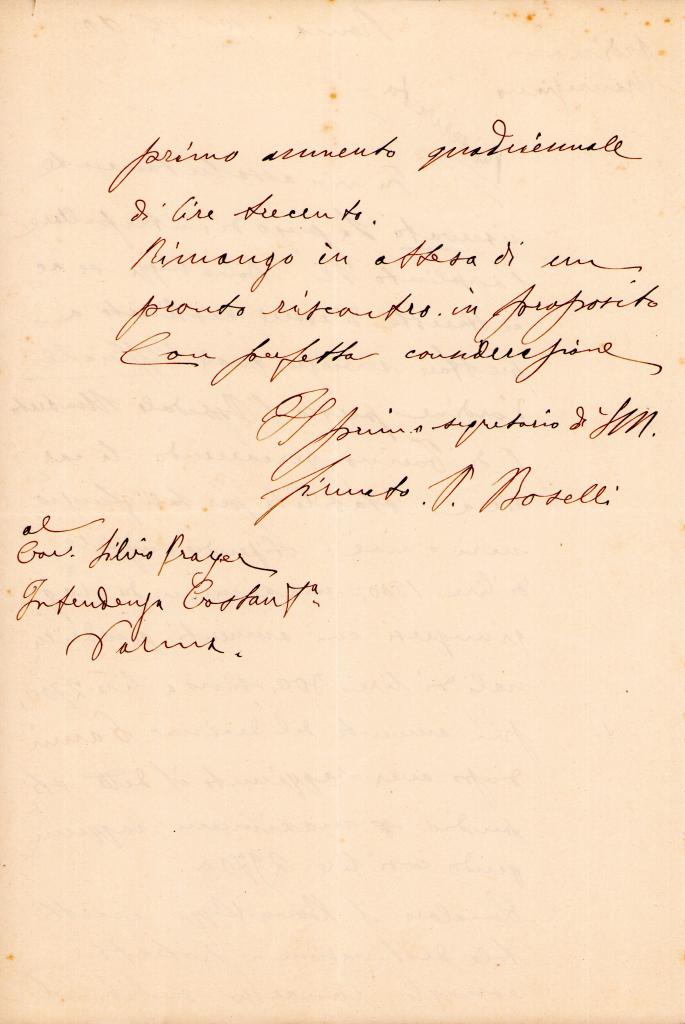 primo aumento quadriennale
di lire trecento.
Rimango in attesa di un
pronto riscontro in proposito
Con perfetta considerazione
Il primo segretario di S.M.
firmato. P. Boselli
al
Cav. Silvio Prayer
Intendenza Costant.a
Parma.